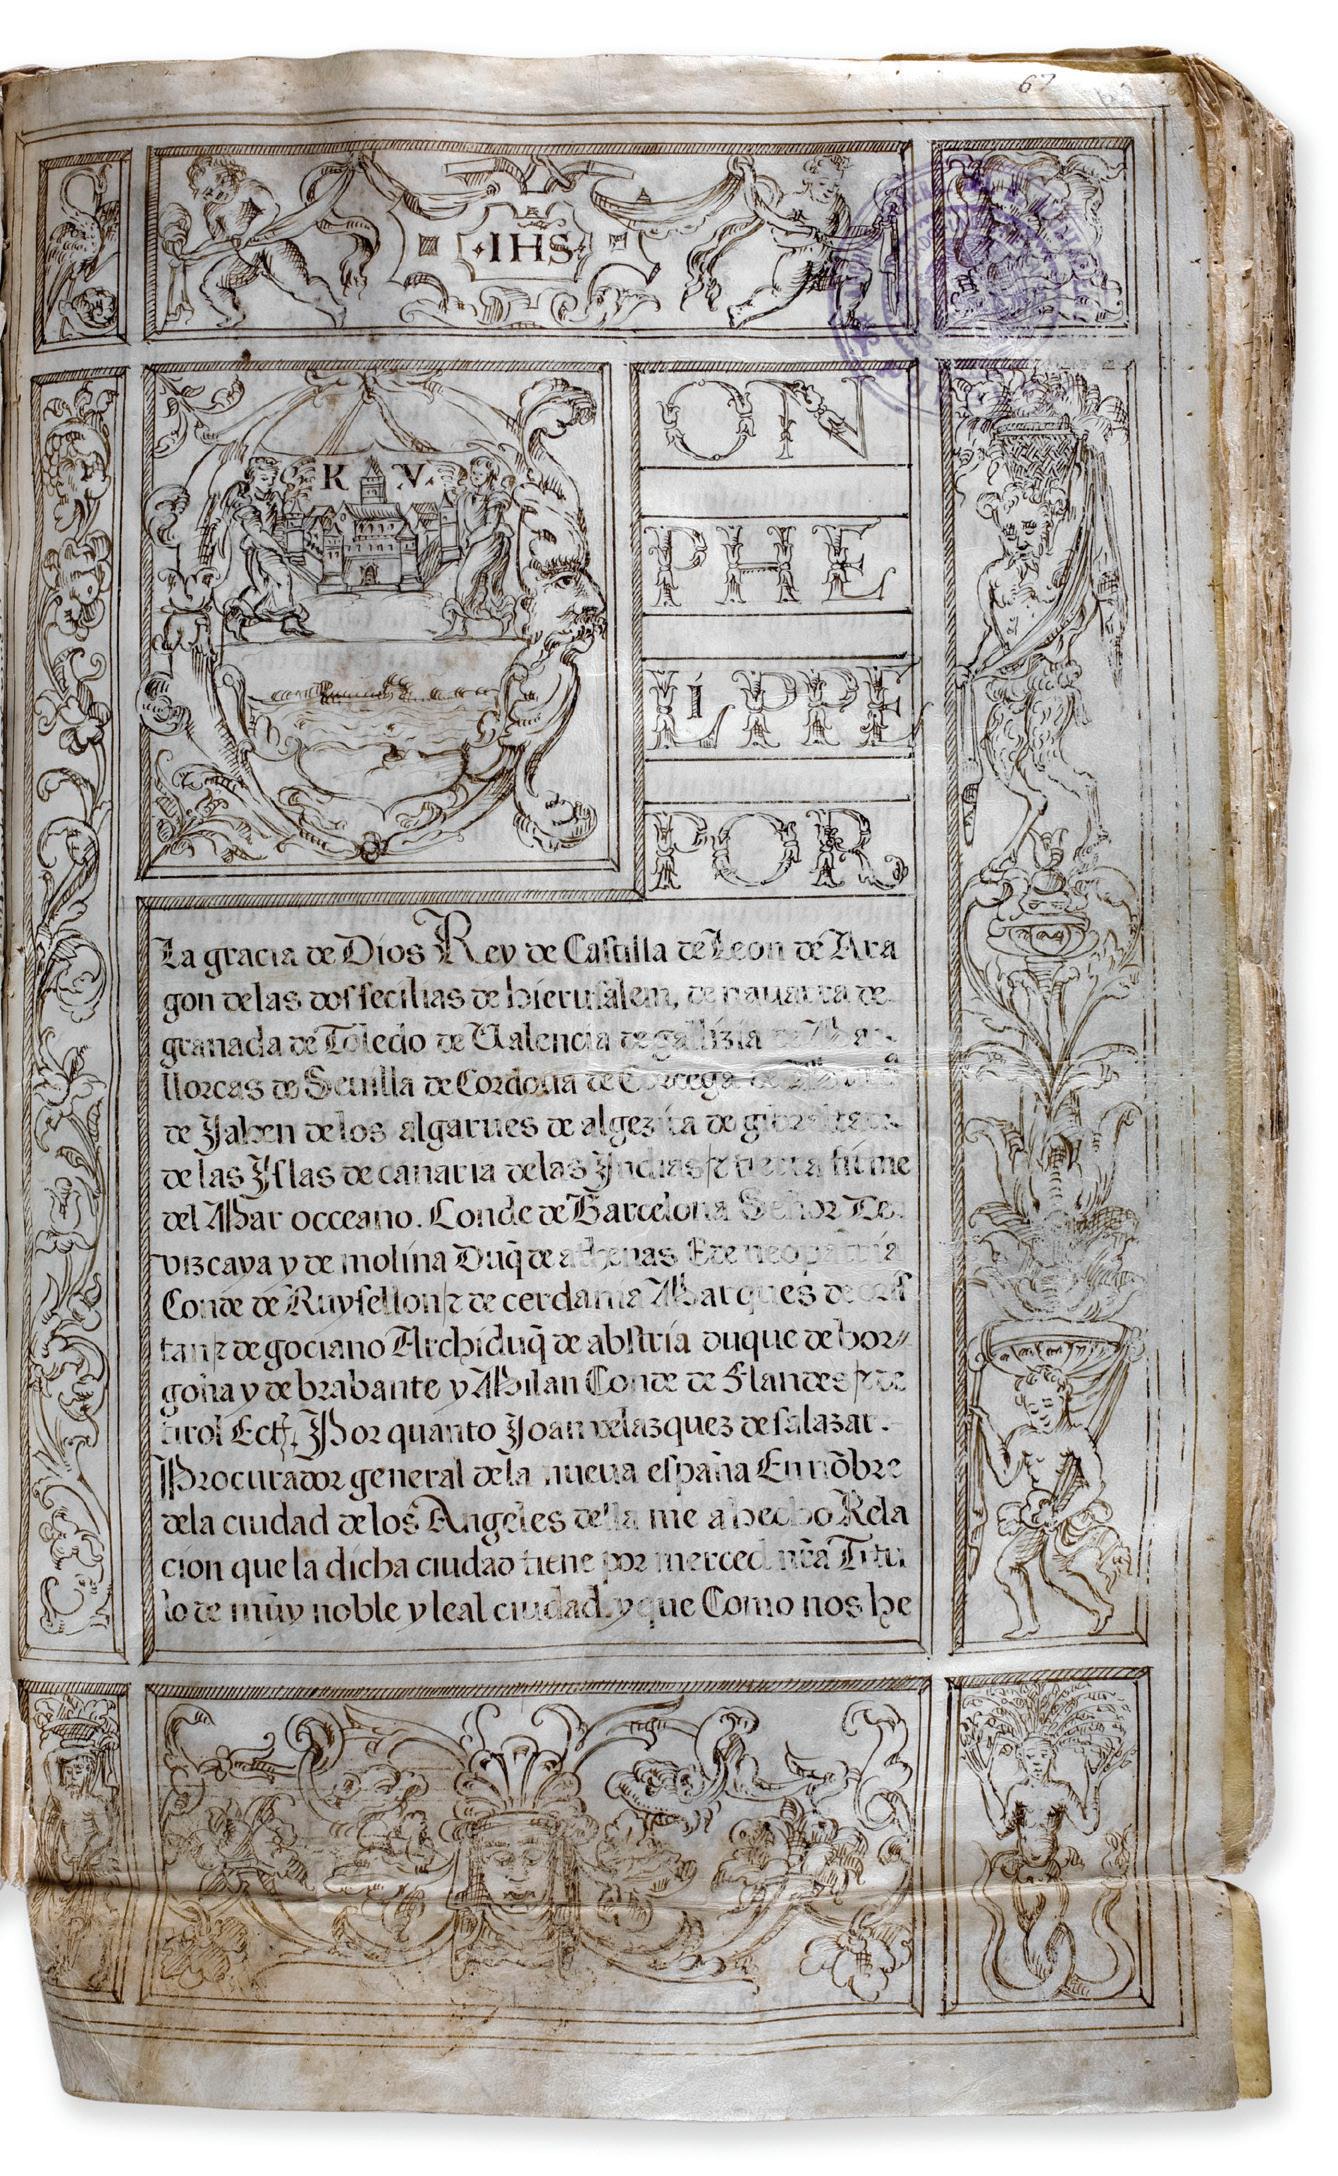 67
IHS
K V
ON
PHE
LiPPE
POR
La gracia de Dios Rey de Castilla de Leon de Ara
gon delas dos secilias de hierusalem, de nauarra de
granada de Toledo de Ualencia de gallizia de Mar
llorcas de Seuilla de Cordoua de Corcega de
de Jahen delos algarues de algezira de gibraltar
de las Yslas de canaria delas Yndias z tierra firme
del Mar occeano. Conde de Barcelona Señor De
vizcaya y de molina Duq̃ de athenas E de neopatria
Conde de Ruysellon z de cerdania Marques de oris
tan z de gociano Archiduq̃ de abstria duque de bor
goña y de brabante y Milan Conde de Flandes z de
tirol Ect̃. Por quanto Joan velazquez de salazar.
Procurador general dela nueua españa En nõbre
dela ciudad delos Angeles della me a hecho Rela
cion que la dicha ciudad tiene por merced nr̃a Titu
lo de muy noble y leal ciudad. y que Como nos he